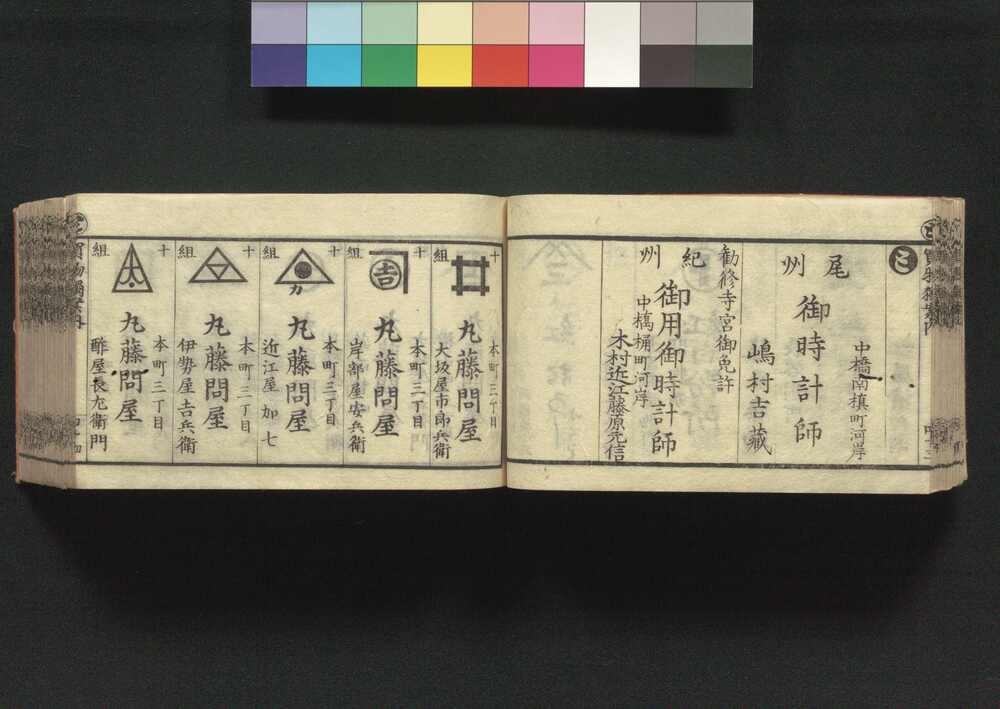 と
中橋南槙町河岸
尾州
御時計師
嶋村吉蔵
勧修寺宮御免許
紀州
御用御時計師
中橋桶町河岸
木村近江藤原元信
十組
本町三丁目
丸藤問屋
大坂屋市郎兵衛
十組
吉
本町三丁目
丸藤問屋
岸部屋安兵衛
十組
カ
本町三丁目
丸藤問屋
近江屋加七
十組
本町三丁目
丸藤問屋
伊勢屋吉兵衛
十組
大
本町三丁目
丸藤問屋
酢屋長左衛門